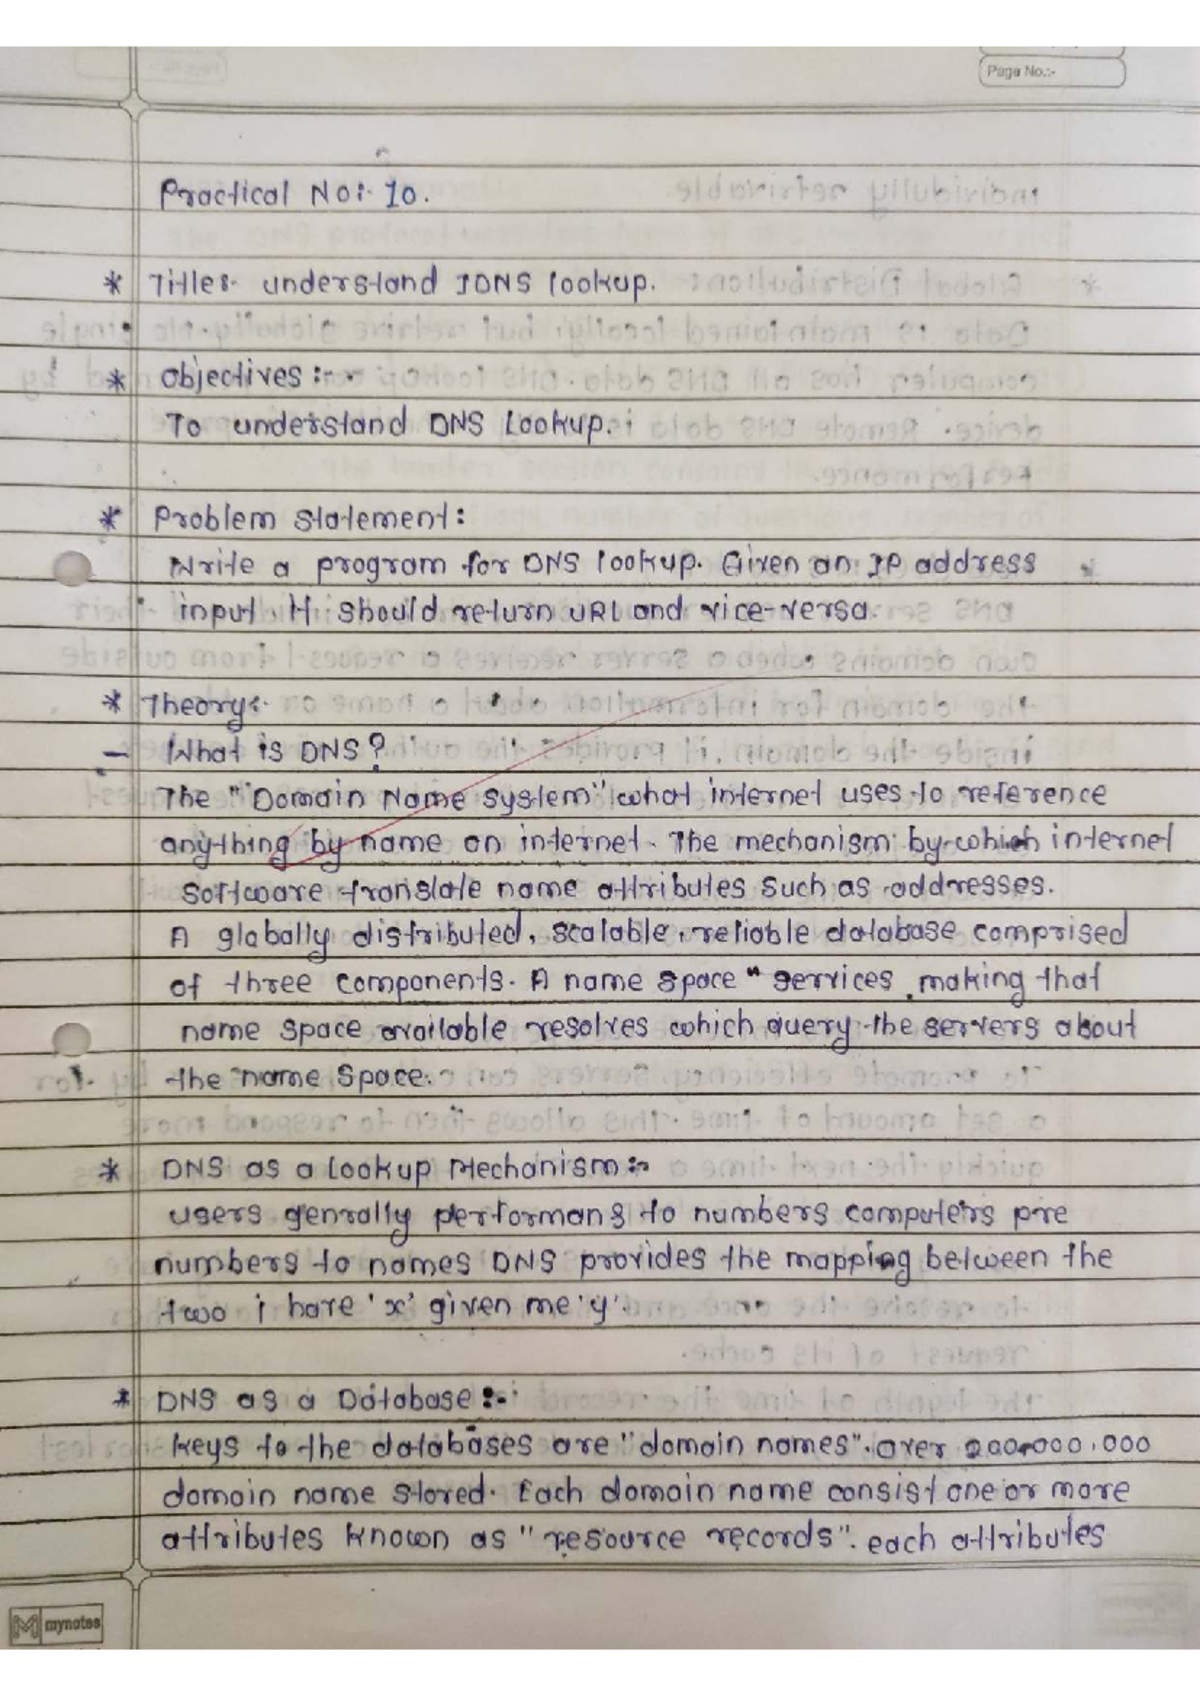 Page No.:-
Practical No:- 10.
* Title:- understand DNS lookup.
* Objectives :-
To understand DNS Lookup.
* Problem statement:
Write a program for DNS lookup. Given an IP address
input, It should return URL and vice-versa.
* Theory:-
- What is DNS?
The "Domain Name System" what internet uses to reference
anything by name on internet. The mechanism by which internet
software translate name attributes such as addresses.
A globally distributed, scalable, reliable database comprised
of three components. A name space " services making that
name space available resolves which query the servers about
the name space.
* DNS as a Lookup Mechanism:-
users genrally performans to numbers computers pre
numbers to names DNS provides the mapping between the
two i have 'x' given me 'y'.
* DNS as a Database :-
keys to the databases are "domain names". over 200,000,000
domain name stored. Each domain name consist one or more
attributes known as "resource records". each attributes
mynotes